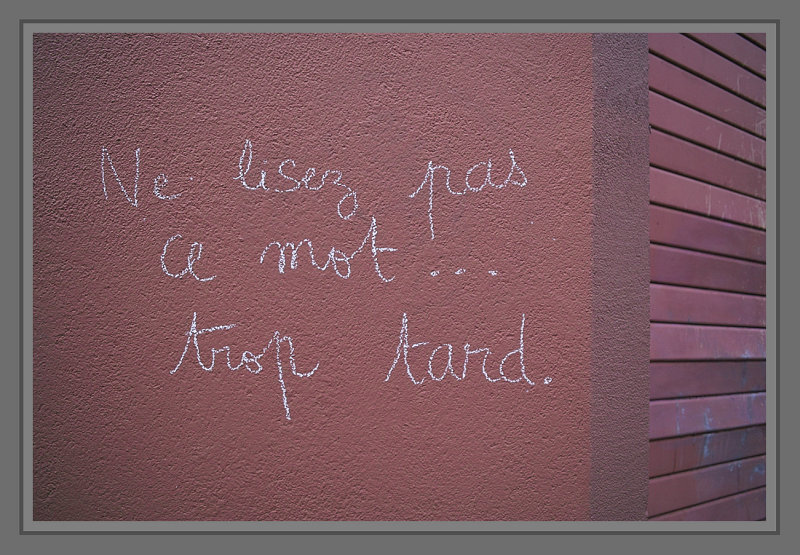 Ne lisez pas
ce mot...
trop tard.